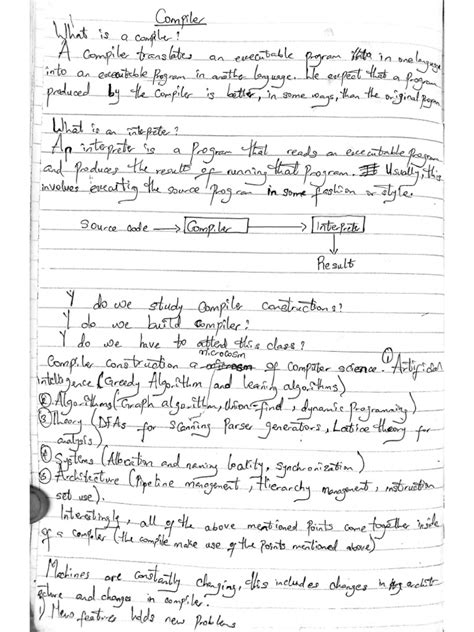 Compiler
What is a compiler?
A Compiler translates an executable program in one language
into an executable Program in another language. We expect that a Program
produced by the Compiler is better, in some ways, than the original program
What is an intepreter?
An interpreter is a Program that reads an executable Program
and produces the result of running that Program. Usually, this
involves executing the source Program in some fashion or style.
Source code → Compiler → Interpreter
Result
Y do we study Compiler constructions?
Y do we build compiler?
Y do we have to attend this class?
microcosm
Compiler construction a of computer science. ① Artificial
intelligence (Greedy Algorithm and learning algorithms)
② Algorithms (Graph algorithm, Union-find, dynamic Programming)
③ Theory (DFAs for scanning Parser generators, Lattice theory for
analysis).
④ Systems (Allocation and naming locality, synchronization)
⑤ Architecture (Pipeline management, Hierarchy management, instruction
set use).
Interestingly, all of the above mentioned Points come together inside
of a compiler (the compiler make use of the Points mentioned above)
Machines are constantly changing, this includes changes in
and changes in compiler.
1) New features holds new Problems